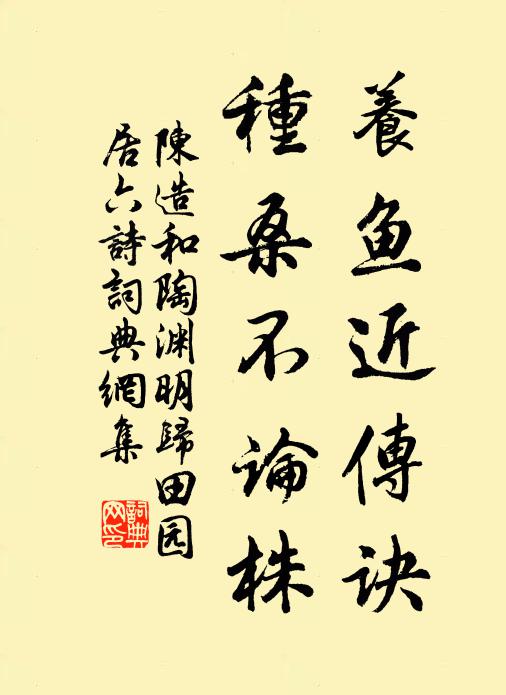 養鱼近傳訣
種桑不論株
陳造和陶渊明歸田园
居六詩詞典網集
詞典
网印